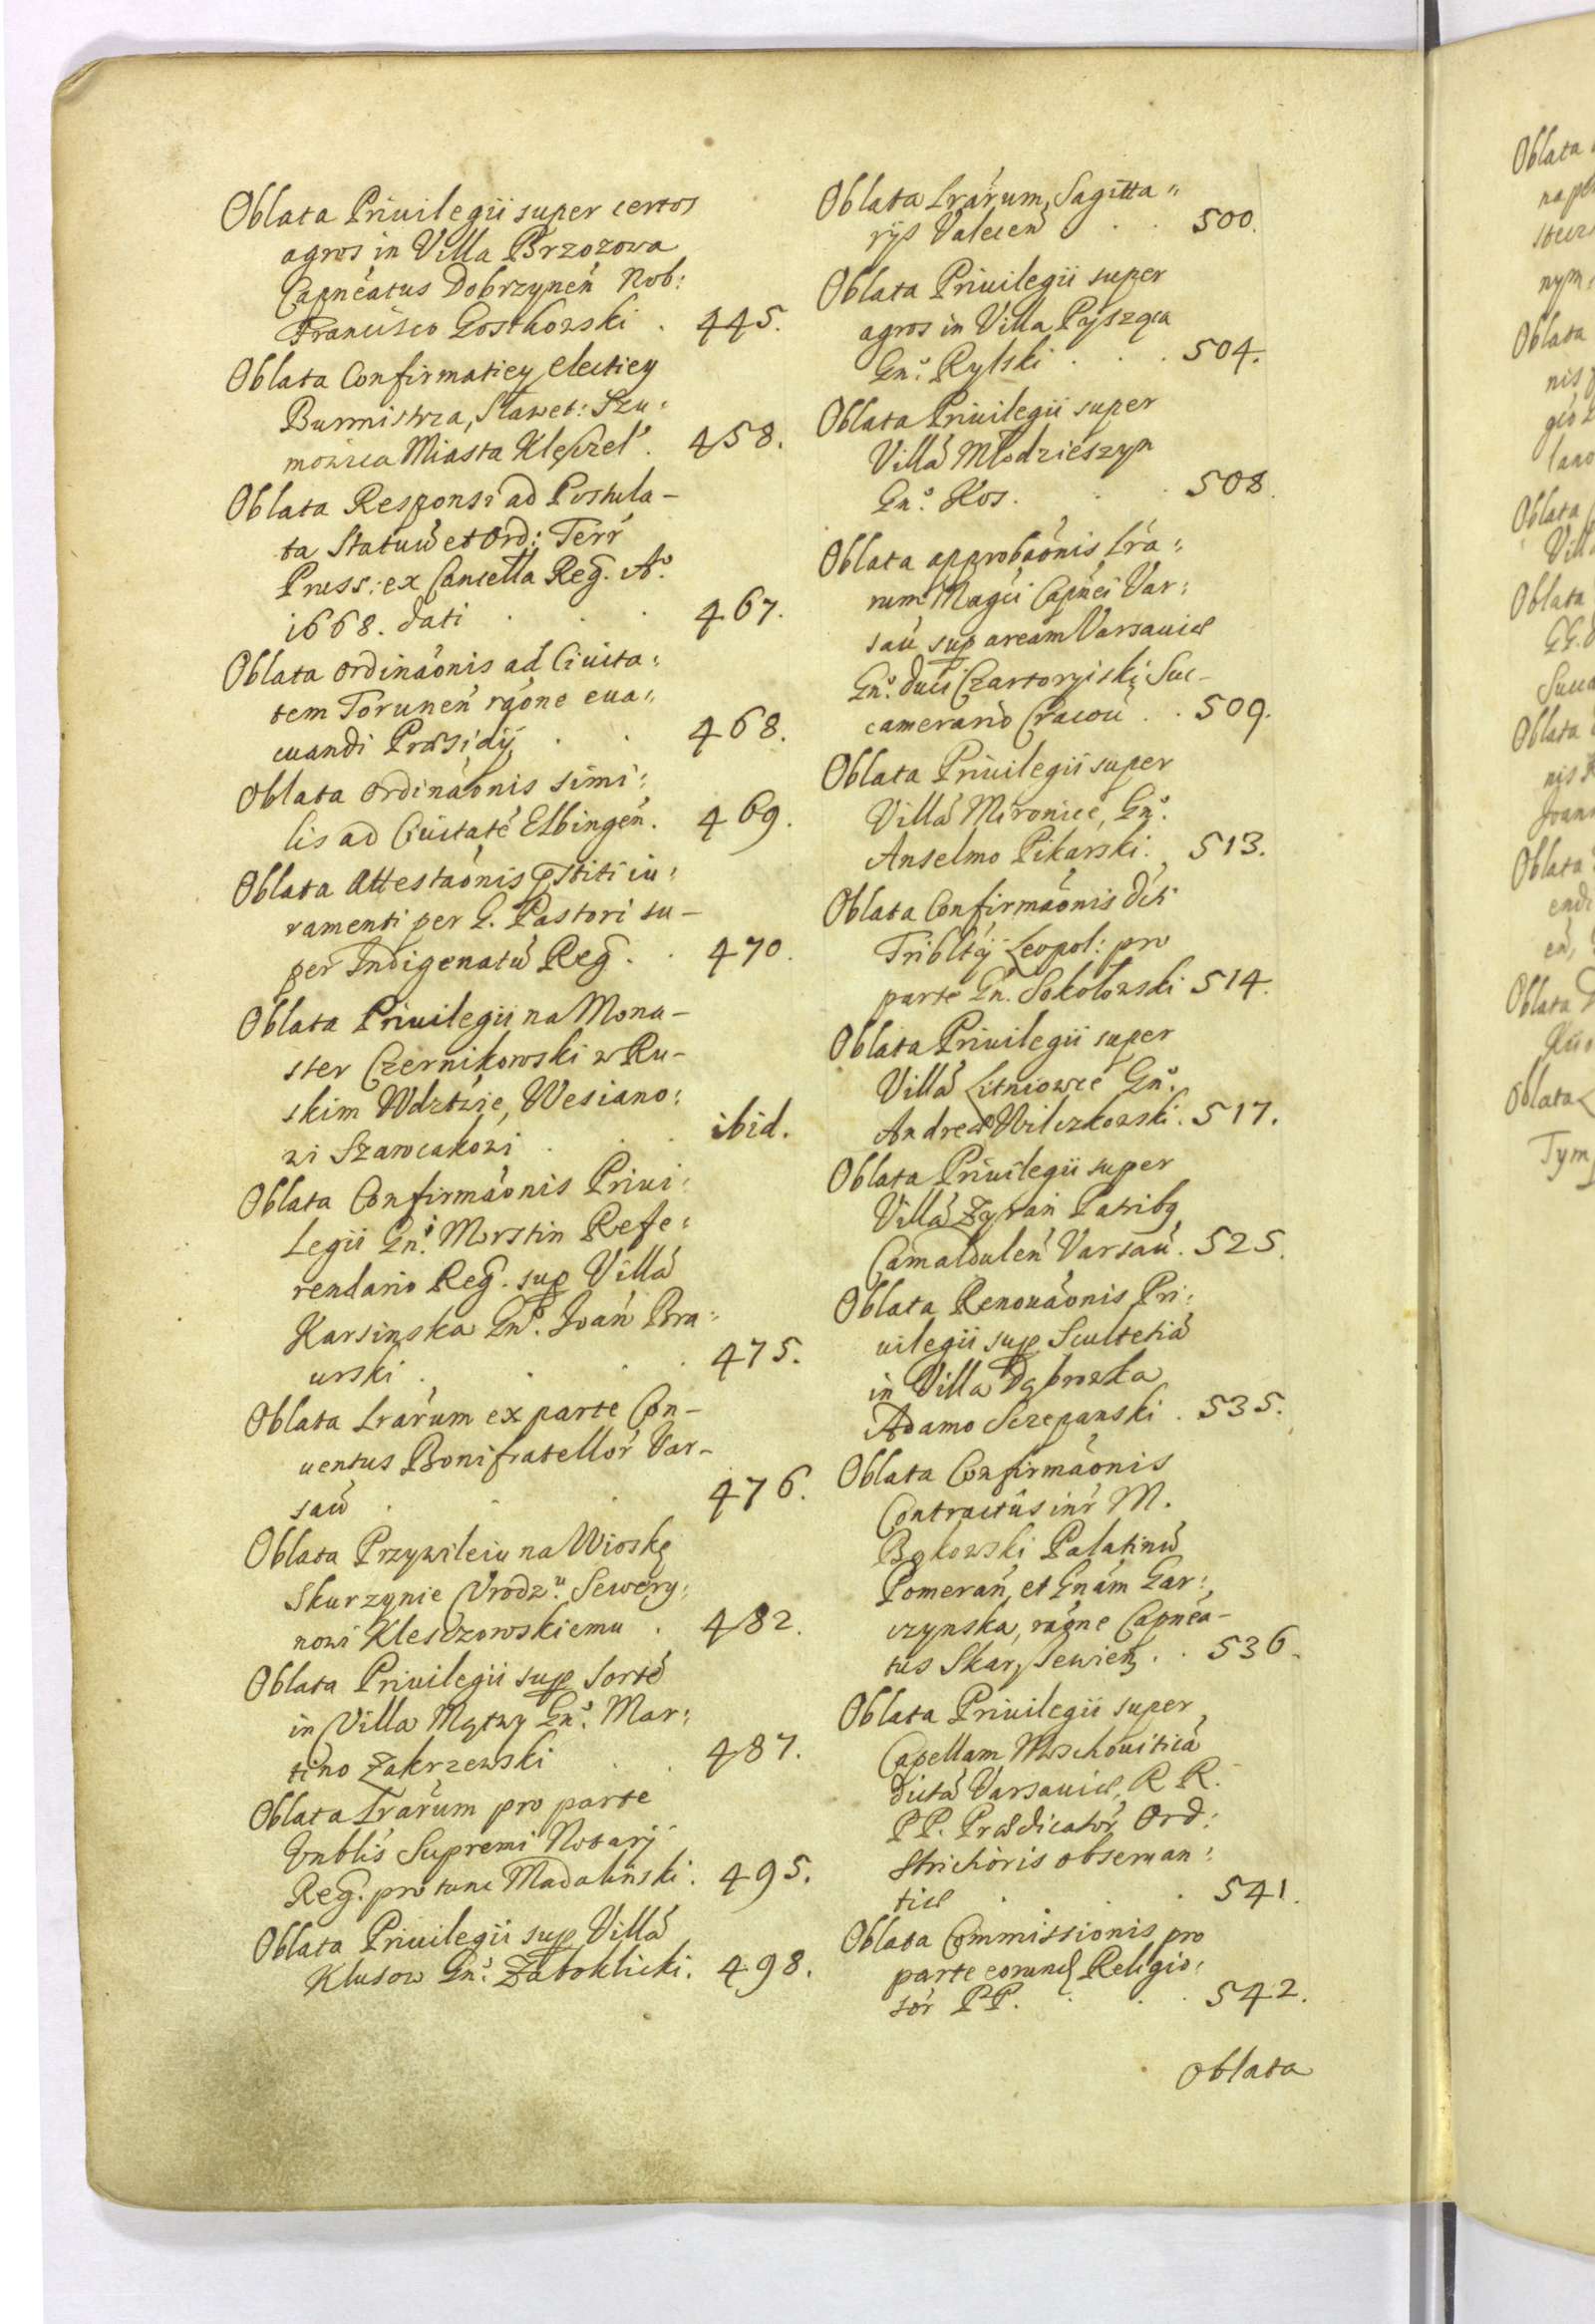 Oblata Priuilegii super certos
agros in Villa Brzozowa
Capneatus Dobrzyneń Nob:
Francisco Gostkowski . 445.
Oblata Confirmatiey electiey
Burmistrza, Sławet: Szu:
mowica Miasta Klęczel. 458.
Oblata Responsi ad Postula-
ta Statuu et Ord: Terr
Pruss: ex Cancella Reg. Aº
1668. dati . . 467.
Oblata ordinaonis ad Ciuita:
tem Torunen raone eua:
cuandi Præsidij . . 468.
Oblata ordinaonis simi:
lis ad Ciuitate Elbingen. 469.
Oblata Attestaonis pstiti iu:
ramenti per G. Pastori su-
per Indigenatu Reg . . 470.
Oblata Priuilegii na Mona-
ster Czernikowski w Ru-
skim Wdztwie, Wesiano:
wi Szawcakowi . . ibid.
Oblata Confirmaonis Priui:
Legii Gnº. Morstin Refe:
rendario Reg. sup Villa
Karsinska Gnº. Joan Bra:
urski . . . 475.
Oblata Lrarum ex parte Con-
uentus Bonifratellor Var-
sau . . . 476.
Oblata Przywileiu na Wioskę
Skurzynie Vrodzᵘ. Sewery:
nowi Kleszczowskiemu . 482.
Oblata Priuilegii sup Sorte
in Villa Mątwy Gnº. Mar:
tino Zakrzewski . . 487.
Oblata Lrarum pro parte
Gnblis Supremi Notarij
Reg. pro tunc Madalinski. 495.
Oblata Priuilegii sup Villa
Klusow Gnº. Zaboklicki. 498.
Oblata Lrarum, Sagitta"
rijs Valecen . . 500.
Oblata Priuilegii super
agros in Villa Pysząca
Gnº. Rylski . . 504.
Oblata Priuilegii super
Villa Młodzieszyn
Gnº. Kos. . . 508.
Oblata approbaonis Lra:
rum Magci Capnei Var:
sau sup aream Varsauiæ
Gnº. duci Czartoryiski Suc-
camerario Cracou . . 509.
Oblata Priuilegii super
Villa Mironice, Gnº.
Anselmo Pikarski. 513.
Oblata Confirmaonis dcti
Tribltij Leopol: pro
parte Gn. Sokołowski 514.
Oblata Priuilegii super
Villa Litniowce Gnº.
Andreæ Wilczkowski. 517.
Oblata Priuilegii super
Villa Zgran Patribq
Camaldulen Varsau. 525.
Oblata Renouaonis Pri:
uilegii sup Scultetia
in Villa Dąbrowka
Adamo Sczepanski . 535.
Oblata Confirmaonis
Contractus intr M.
Bąkowski Palatinu
Pomeran, et Gnam Gar:
czynska, raone Capnea-
tus Skarszewien . . 536.
Oblata Priuilegii super
Capellam Moschouitica
dicta Varsauiæ, R R.
PP. Prædicator Ord:
Strichioris obseruan:
tiæ . . . 541.
Oblata Commissionis pro
parte eorund Religio:
sor PP. . . . 542.
Oblata